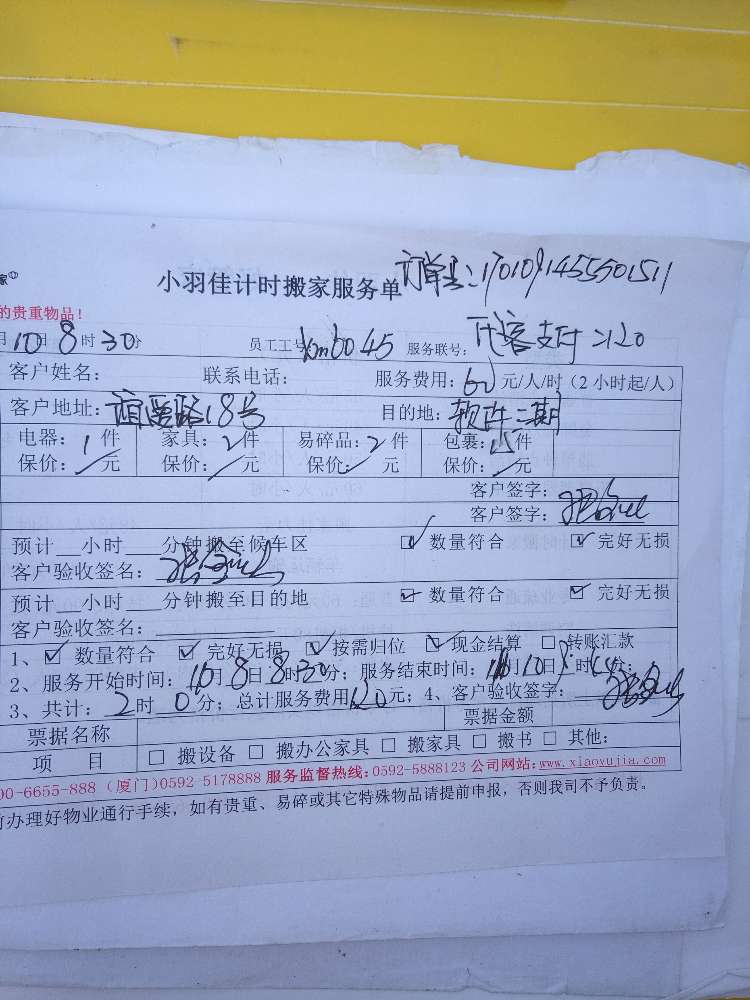 小羽佳计时搬家服务单 订单号：1701091455501511
的贵重物品！
月10日8时30分 员工工号 服务联号：代客支付120
客户姓名： 联系电话： 服务费用：60元/人/时（2小时起/人）
客户地址：谊爱路18号 目的地：软件二期
电器：1件 家具：2件 易碎品：2件 包裹：15件
保价：/元 保价：/元 保价：/元 保价：/元
客户签字：
客户签字：
预计__小时___分钟搬至候车区 ☑ 数量符合 ☑ 完好无损
客户验收签名：
预计__小时___分钟搬至目的地 ☑ 数量符合 ☑ 完好无损
客户验收签名：
1、☑ 数量符合 ☑ 完好无损 ☑ 按需归位 ☑ 现金结算 □ 转账汇款
2、服务开始时间：10月8日8时30分；服务结束时间：月10日时分；
3、共计：2时0分；总计服务费用120元；4、客户验收签字：
票据名称 票据金额
项 目 □ 搬设备 □ 搬办公家具 □ 搬家具 □ 搬书 □ 其他：
00-6655-888（厦门）0592-5178888 服务监督热线：0592-5888123 公司网站：www.xiaoyujia.com
前办理好物业通行手续，如有贵重、易碎或其它特殊物品请提前申报，否则我司不予负责。